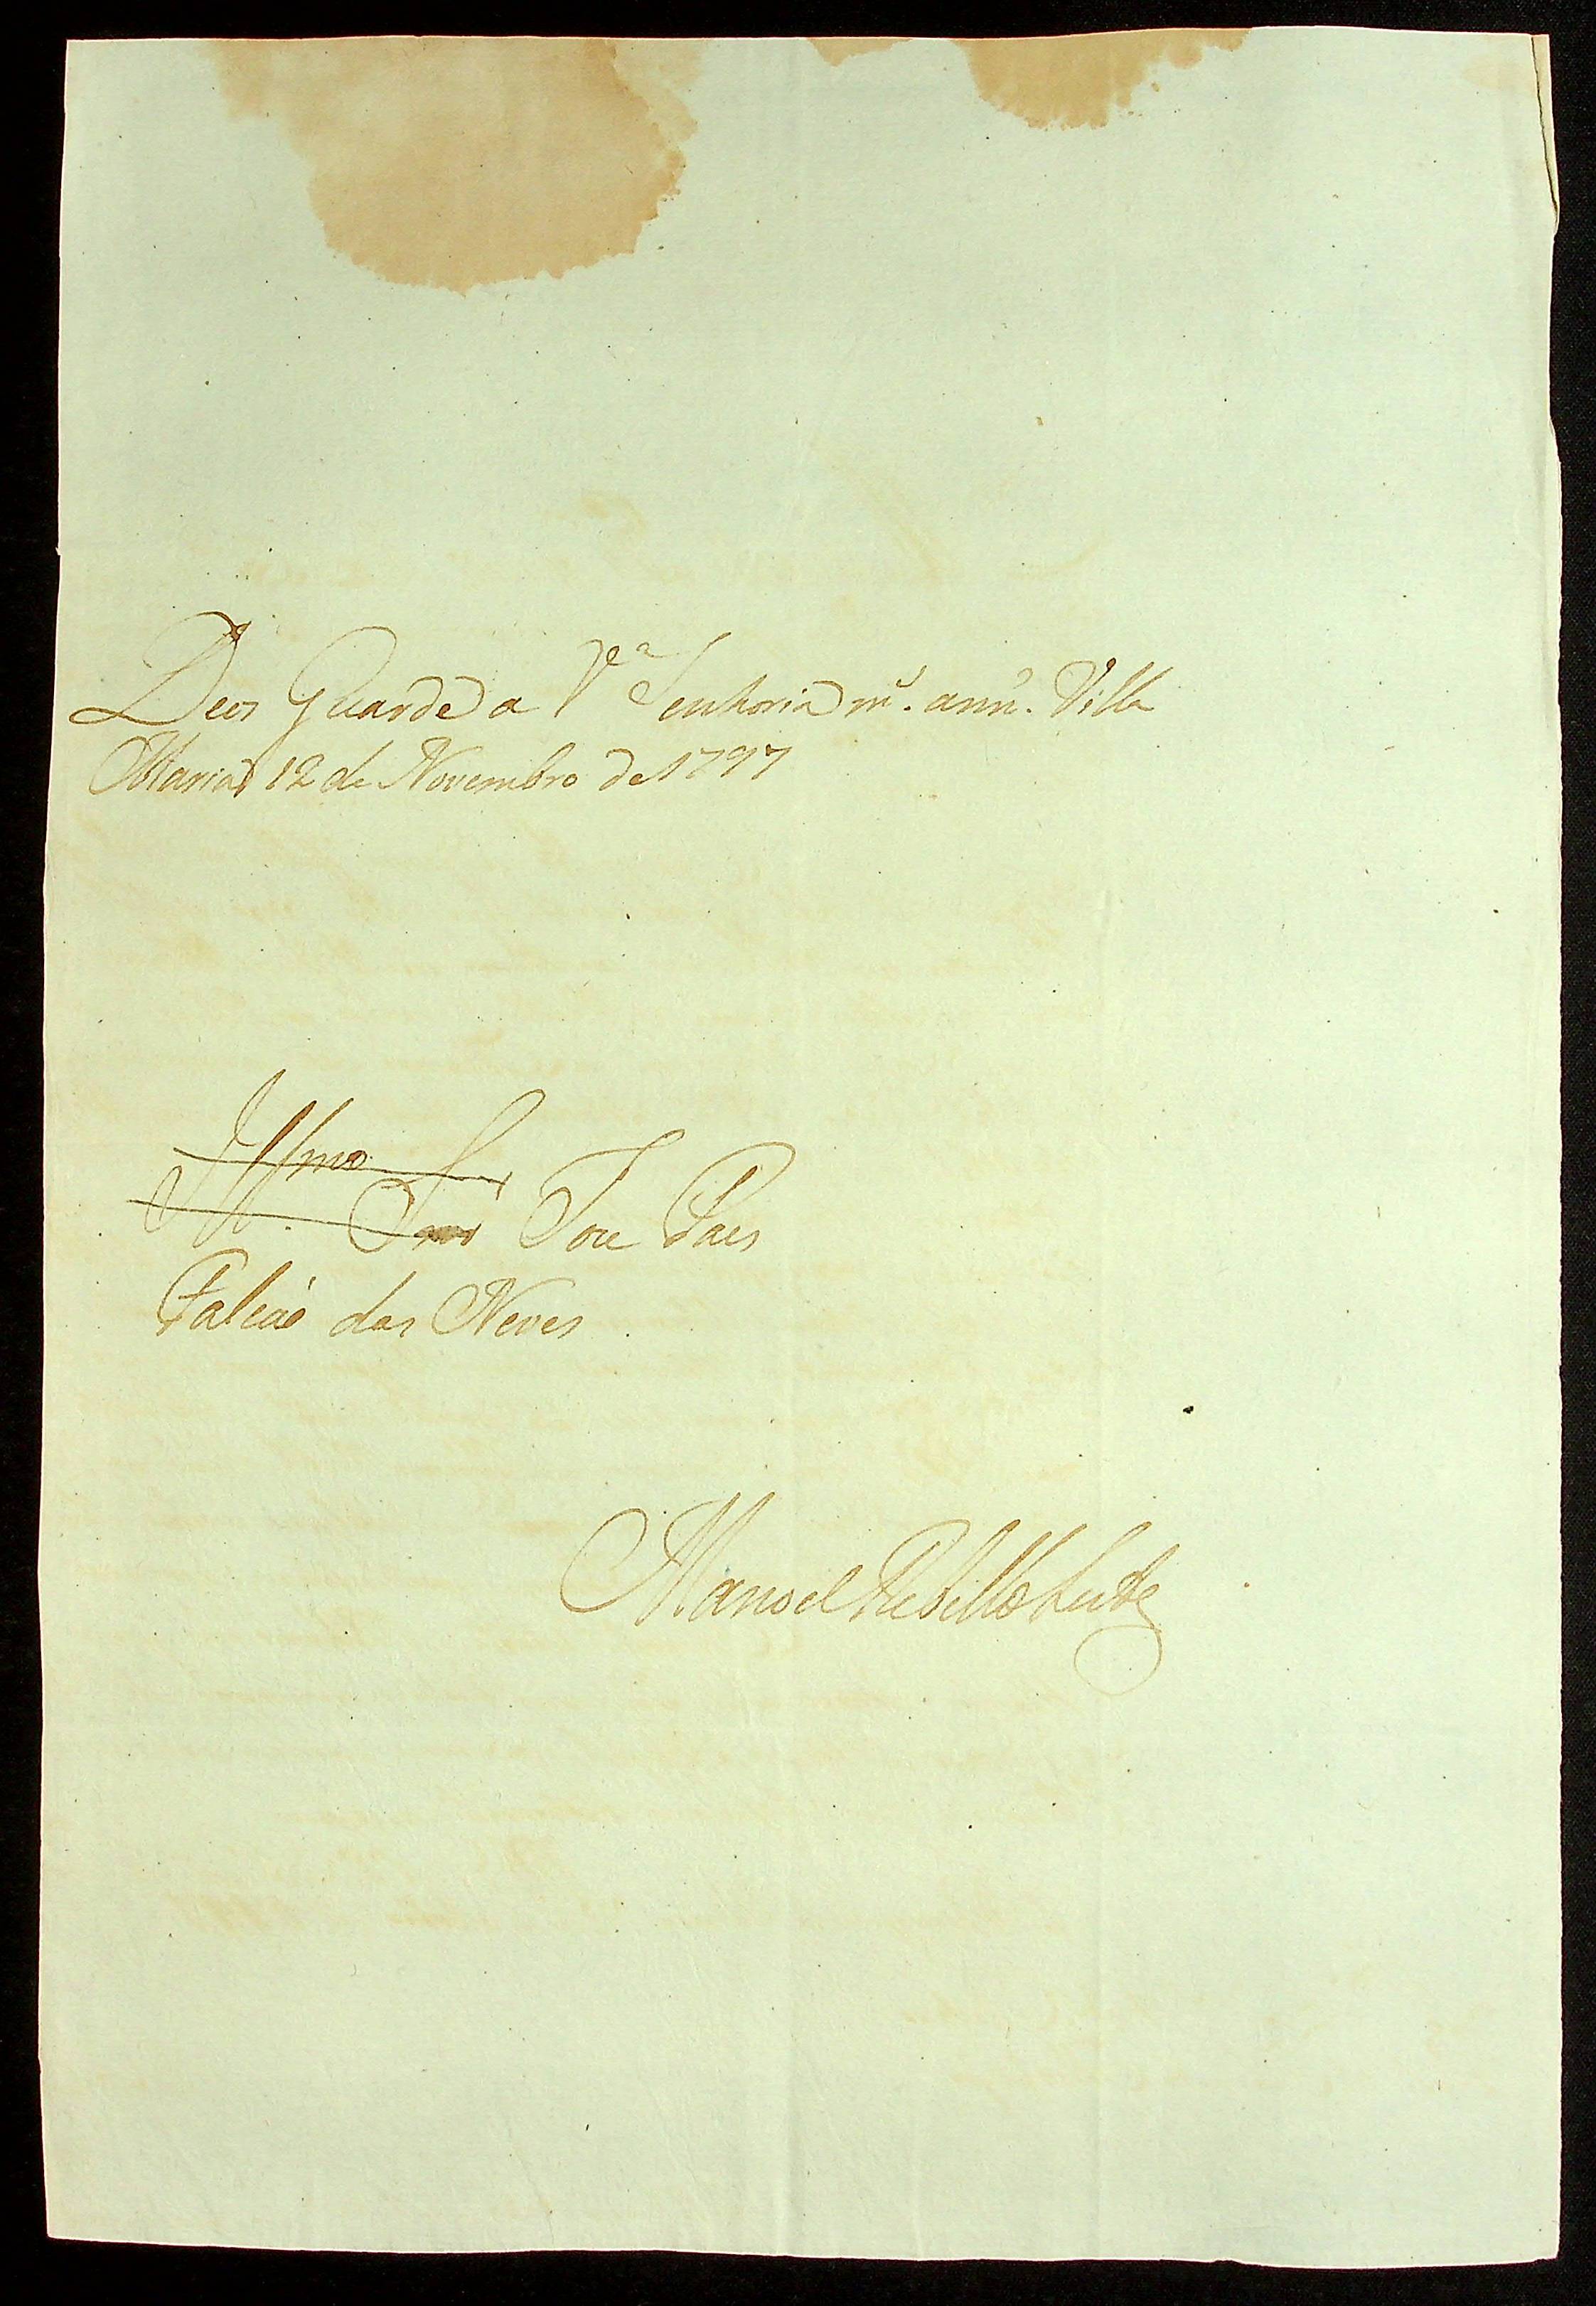 Deos Guarde a Vª Senhoria m.s ann.s Villa
Maria 12 de Novembro de 1797
Illmo Sr
Joze Paes
Falcaõ das Neves
Manoel Rebello Leite